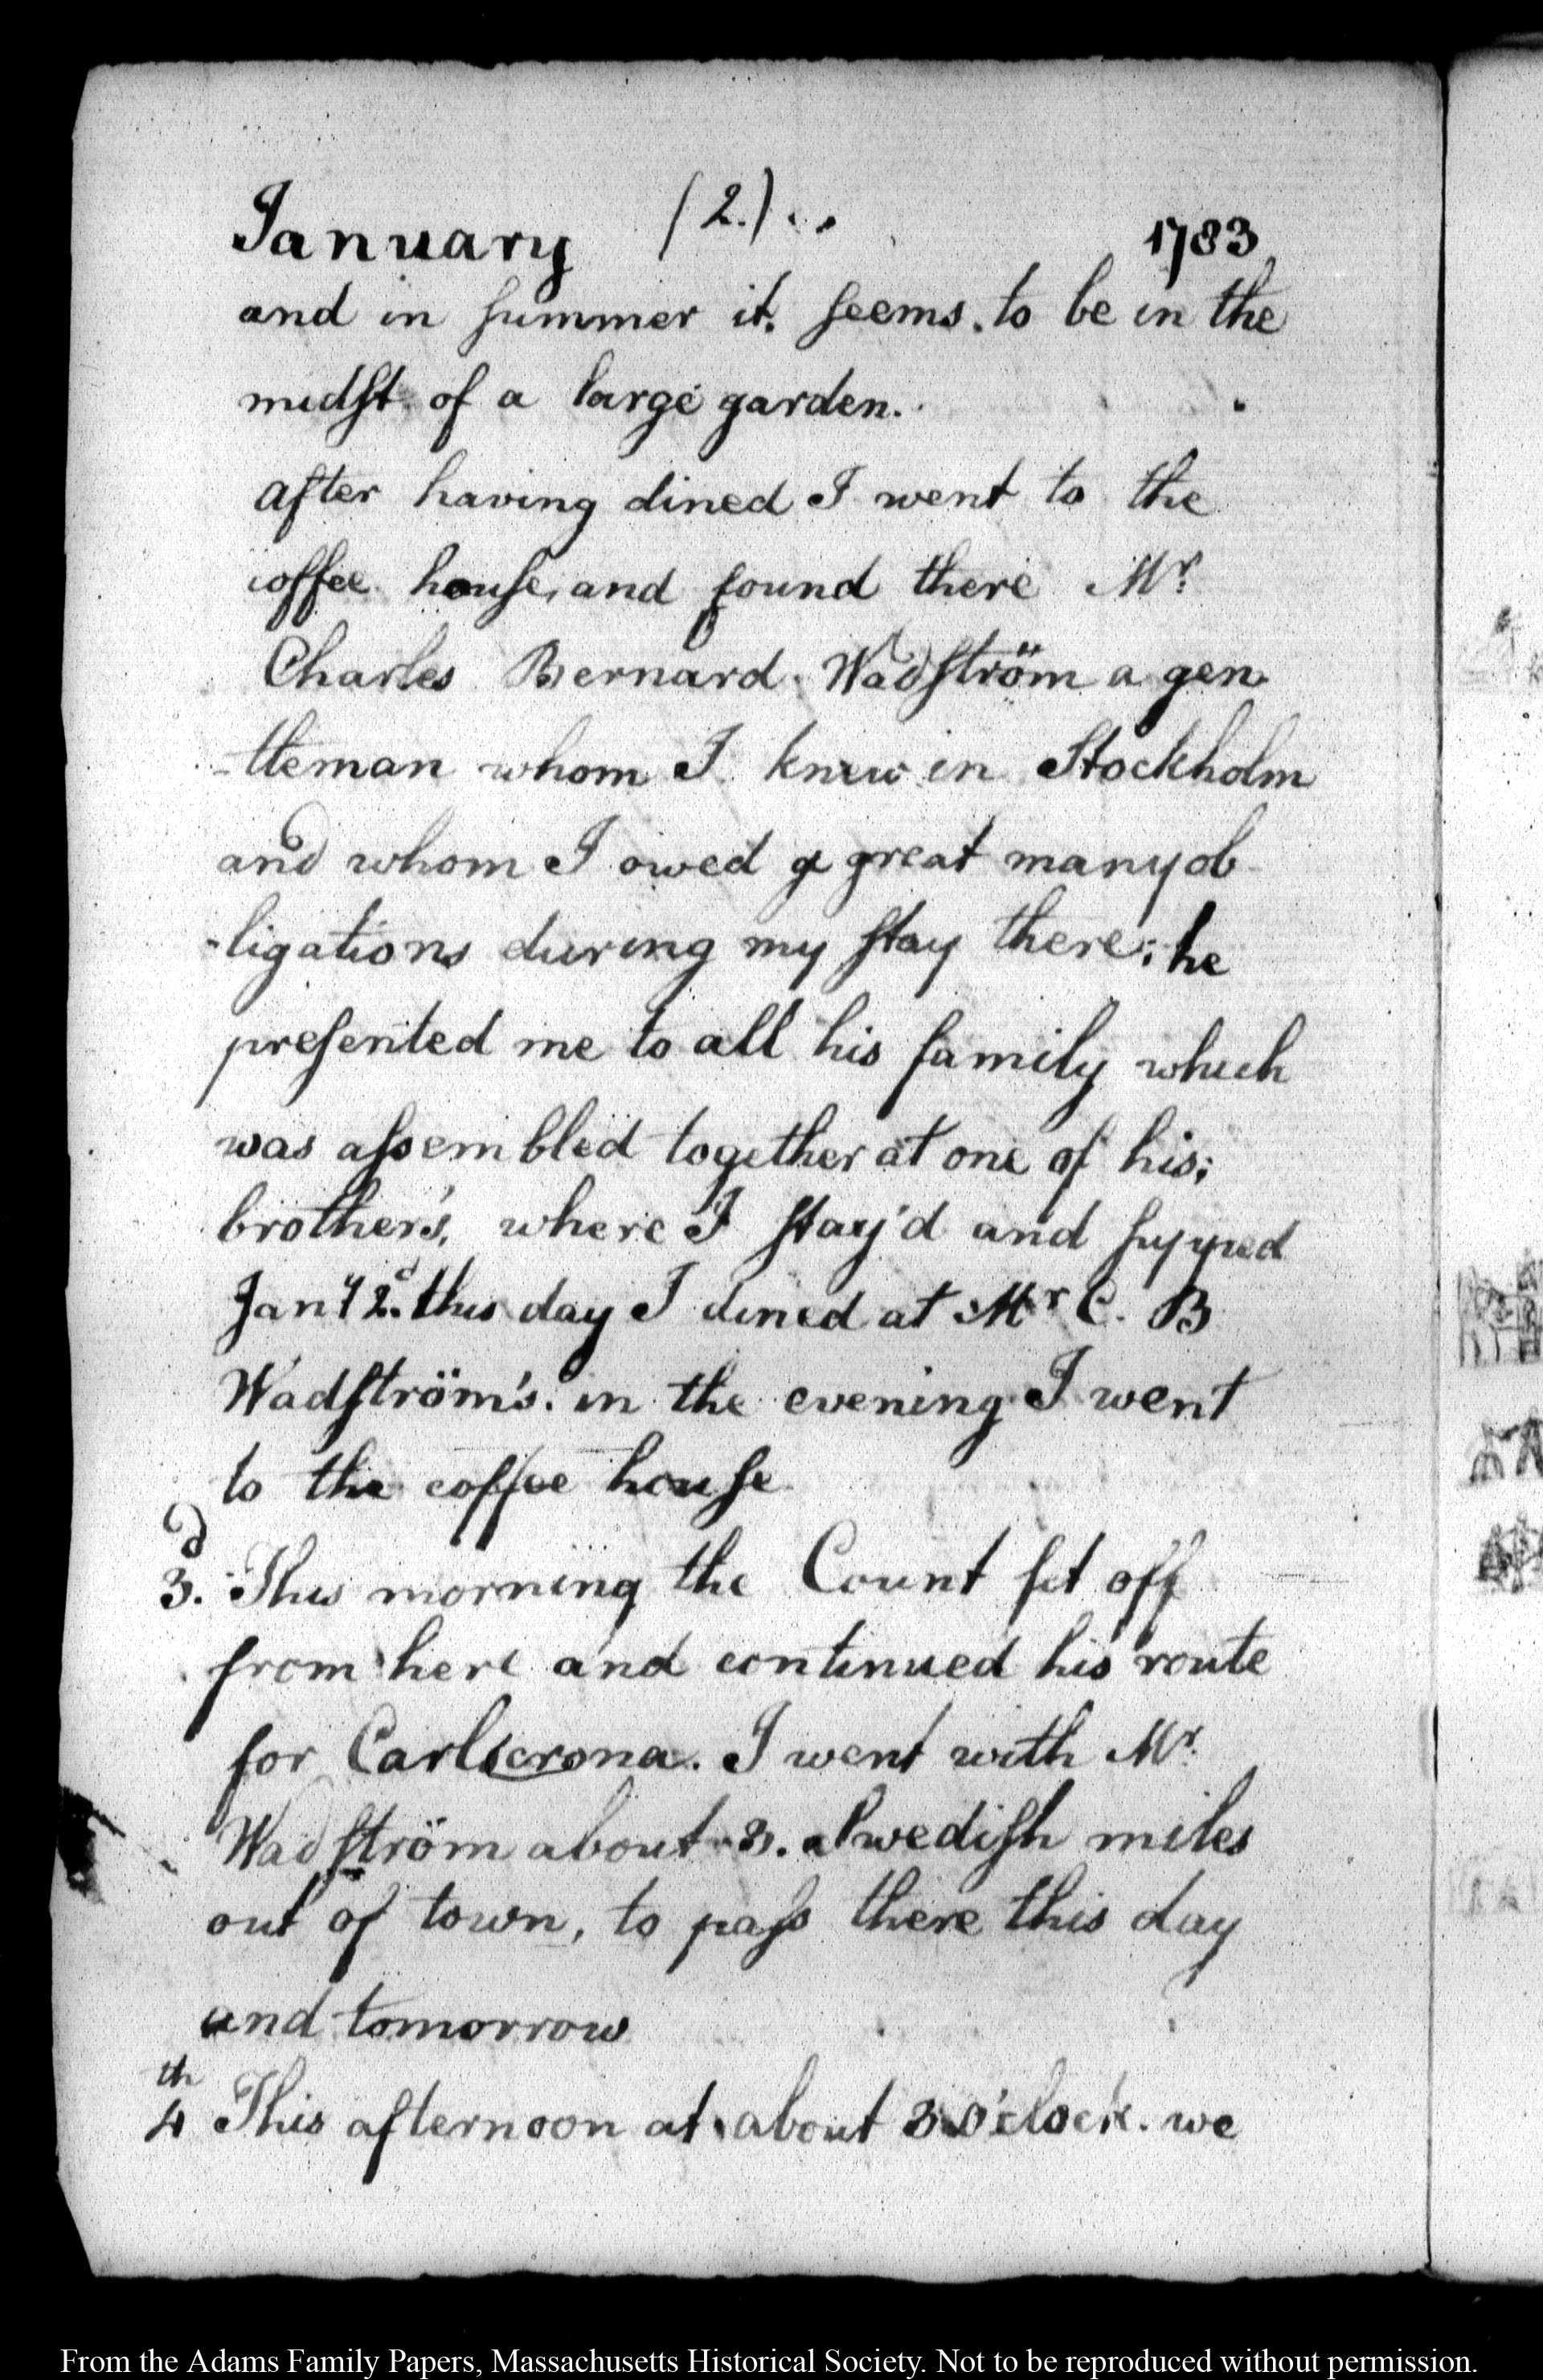 January (2.) 1783
and in summer it seems to be in the
midst of a large garden.
after having dined I went to the
coffee house, and found there Mr.
Charles Bernard Wadström a gen
-tleman whom I knew in Stockholm
and whom I owed a great many ob
-ligations during my stay there; he
presented me to all his family which
was assembled together at one of his
brother's, where I stay'd and supped
Jany 2d. this day I dined at Mr C. B
Wadström's. in the evening I went
to the coffee house
3d. This morning the Count set off
from here and continued his route
for Carlscrona. I went with Mr.
Wadström about 3. Swedish miles
out of town, to pass there this day
and tomorrow
4th This afternoon at about 3 o'clock. we
From the Adams Family Papers, Massachusetts Historical Society. Not to be reproduced without permission.